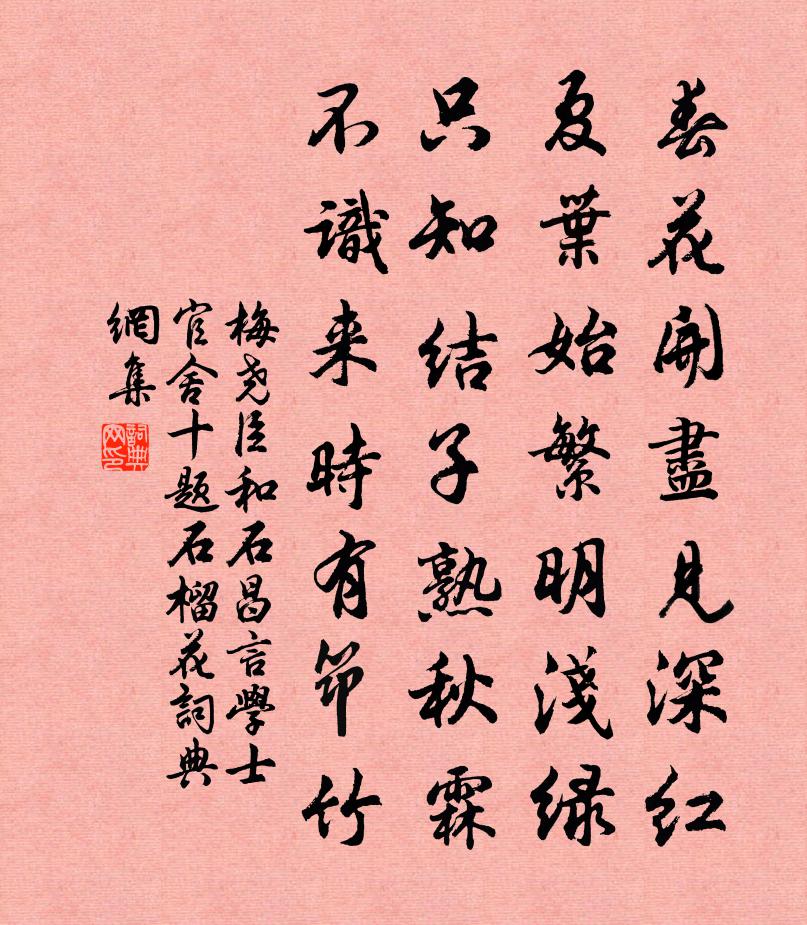 春花開盡見深紅
夏葉始繁明淺緑
只知結子熟秋霖
不識来時有笻竹
梅尧臣和石昌言學士
官舍十题石榴花詞典
網集
詞典
网印